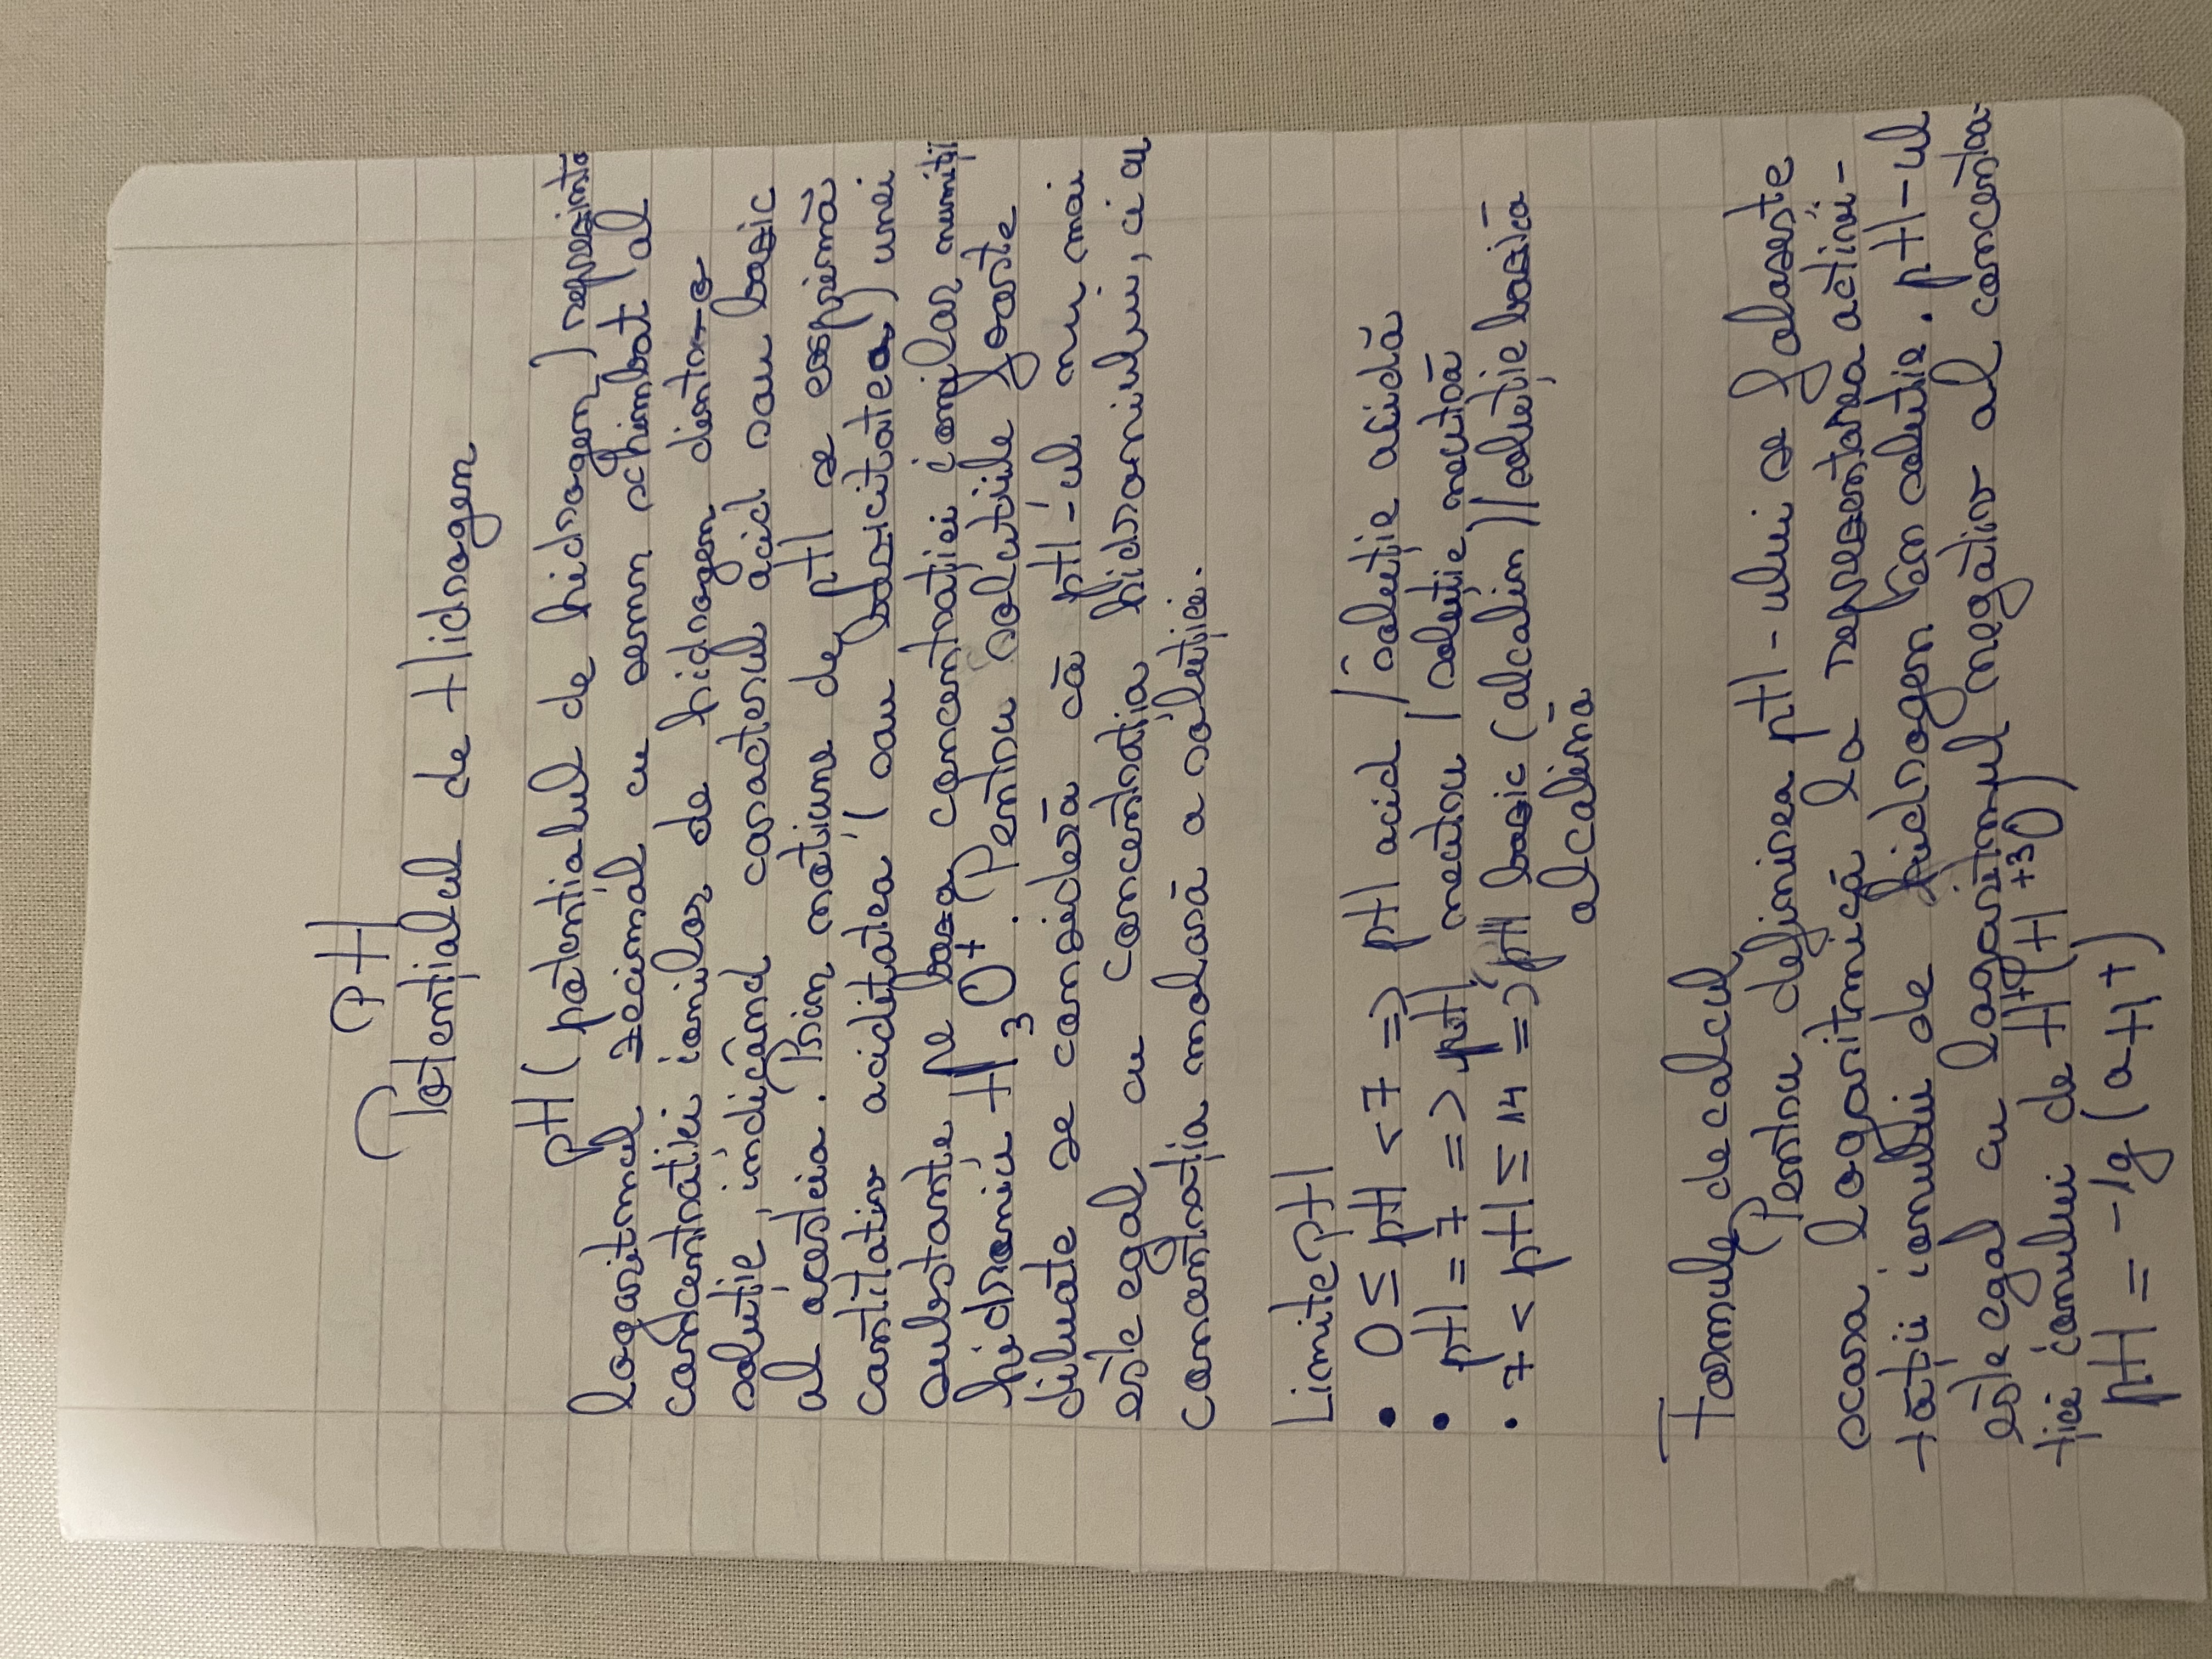 PH
Potențialul de Hidrogen
pH (potențialul de hidrogen) reprezintă
logaritmul zecimal cu semn schimbat al
concentrației ionilor de hidrogen dintr-o
soluție, indicând caracterul acid sau bazic
al acesteia. Prin noțiune de pH se exprimă
cantitativ aciditatea (sau bazicitatea) unei
substanțe pe baza concentrației ionilor numiți
hidroniu H3O+. Pentru soluțiile foarte
diluate se consideră că pH-ul nu mai
este egal cu concentrația hidroniului, ci cu
concentrația molară a soluției.
Limite pH
• 0 ≤ pH < 7 => pH acid / soluție acidă
• pH = 7 => pH neutru / soluție neutră
• 7 < pH ≤ 14 => pH bazic (alcalin) / soluție bazică
alcalină
Formule de calcul
Pentru definirea pH-ului se folosește
scara logaritmică la reprezentarea activi-
tății ionului de hidrogen în soluție. pH-ul
este egal cu logaritmul negativ al concentra-
ției ionului de H+ (H+3O)
pH = -lg (aH+)